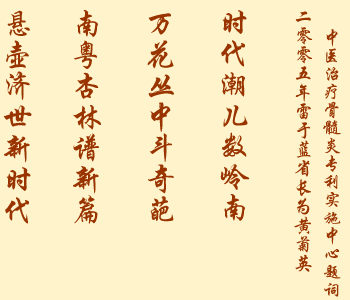 中医治疗骨髓炎专利实施中心题词
二零零五年雷于蓝省长为黄菊英
时代潮儿数岭南
万花丛中斗奇葩
南粤杏林谱新篇
悬壶济世新时代